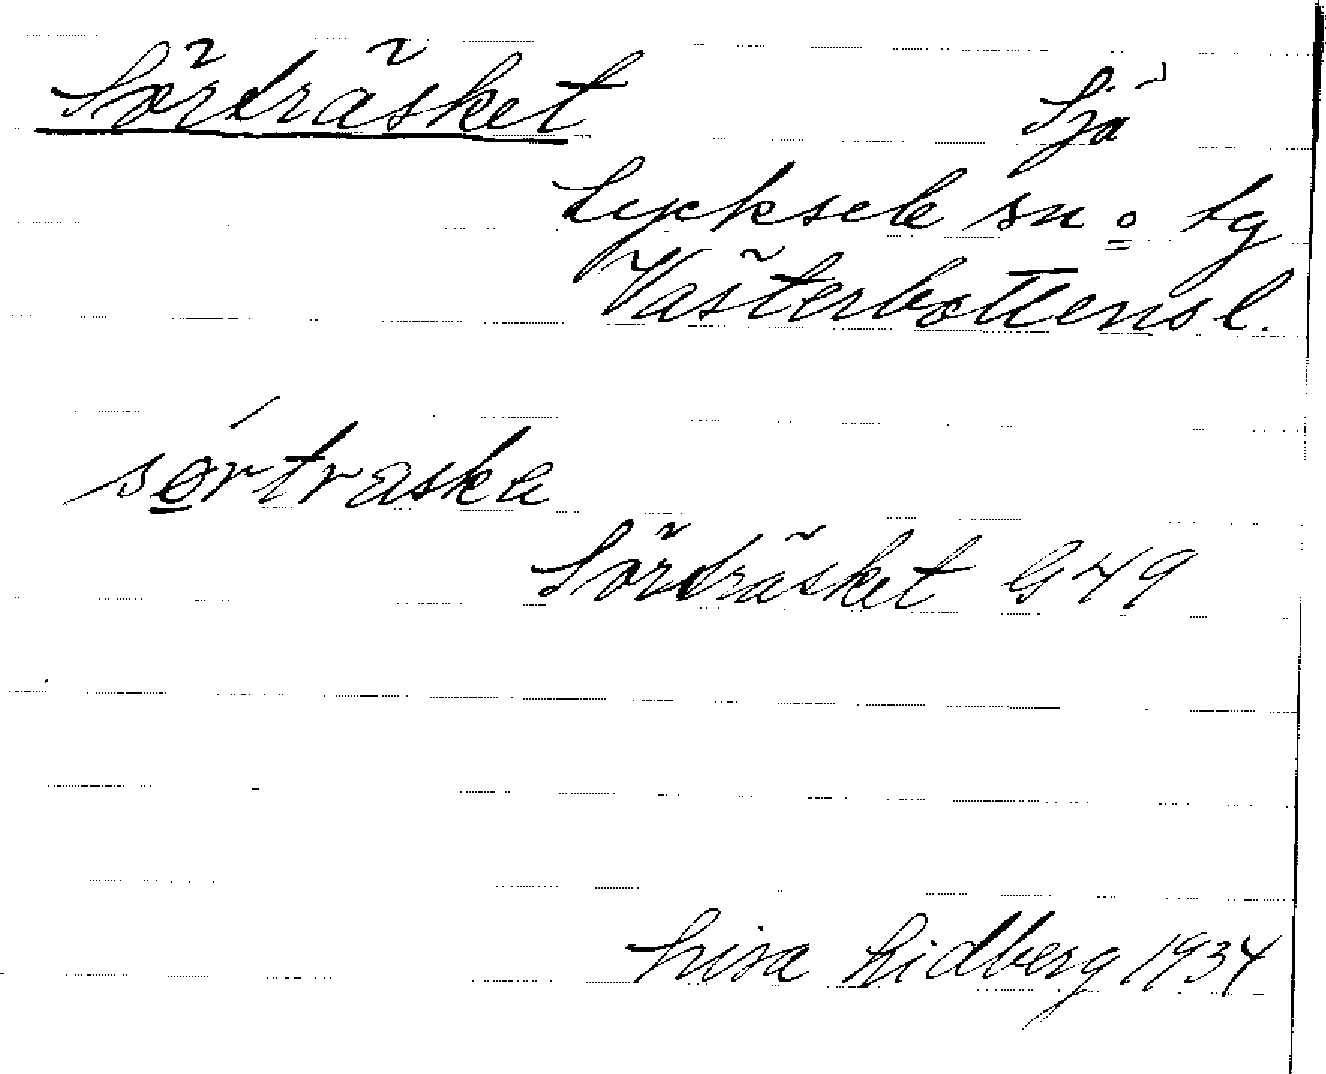 Sördräsket Sjö
Lycksele sn o lg
Västerbottens l.
sǿrtraska
Sördräsket G 49
Lisa Lidberg 1934